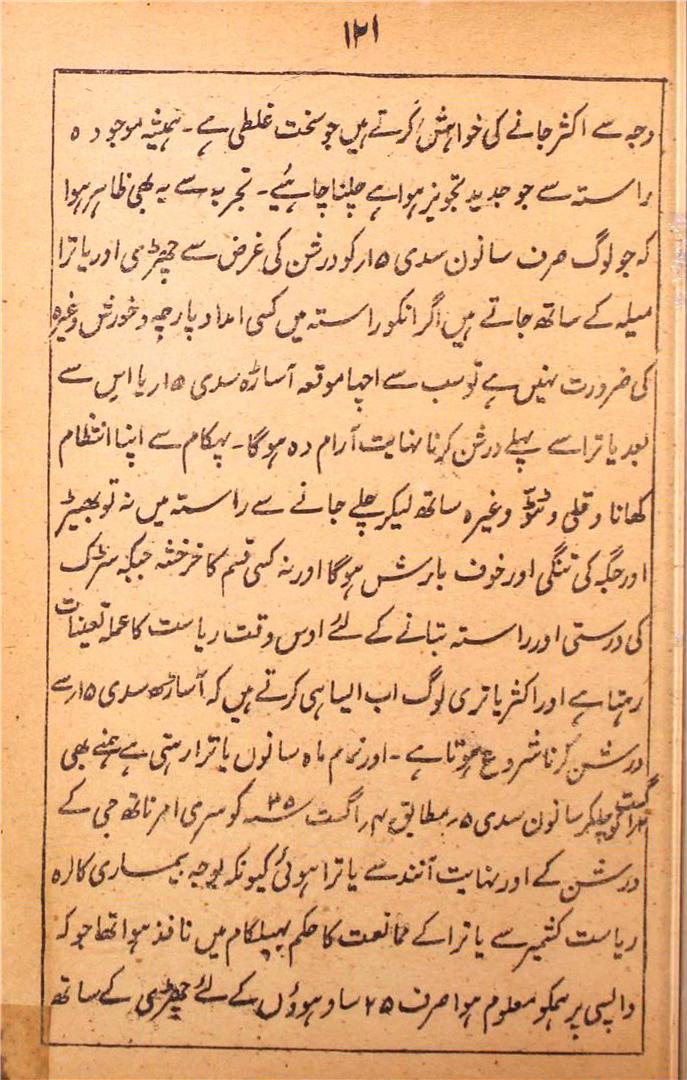 ۱۲۱
وجہ سے اکثر جانے کی خواہش کرتے ہیں جو سخت غلطی ہے۔ ہمیشہ موجودہ
راستہ سے جو جدید تجویز ہوا ہے چلنا چاہئیے۔ تجربہ سے یہ بھی ظاہر ہوا
کہ جو لوگ صرف سانون سدی ۱۵ر کو درشن کی غرض سے چھڑی اور یاترا
میلہ کے ساتھ جاتے ہیں اگر انکو راستہ میں کسی امداد پارچہ و خورش وغیرہ
کی ضرورت نہیں ہے تو سب سے اچھا موقعہ آساڑہ سدی ۱۵ر یا اس سے
بعد یاترا سے پہلے درشن کرنا نہایت آرام دہ ہوگا۔ پہلگام سے اپنا انتظام
کھانا و قلی و ٹٹو وغیرہ ساتھ لیکر چلے جانے سے راستہ میں نہ تو بھیڑ
اور جگہ کی تنگی اور خوف بارش ہوگا اور نہ کسی قسم کا خرخشہ جبکہ سڑک
کی درستی اور راستہ بتانے کے لئے اوس وقت ریاست کا عملہ تعینات
رہتا ہے اور اکثر یاتری لوگ اب ایسا ہی کرتے ہیں کہ آساڑھ سدی ۱۵ر سے
درشن کرنا شروع ہوتا ہے۔ اور تمام ماہ سانوں یاترا رہتی ہے ہمنے بھی
اگست کو چلکر سانون سدی ۵ر مطابق ۴ر اگست ۳۵ سنہ کو سری امرناتھ جی کے
درشن کے اور نہایت آنند سے یاترا ہوئی کیونکہ بوجہ بیماری کالرہ
ریاست کشمیر سے یاترا کے ممانعت کا حکم پہلگام میں نافذ ہوا تھا جو کہ
واپسی پر ہمکو معلوم ہوا صرف ۲۵ سادہوؤں کے لئے چھڑی کے ساتھ